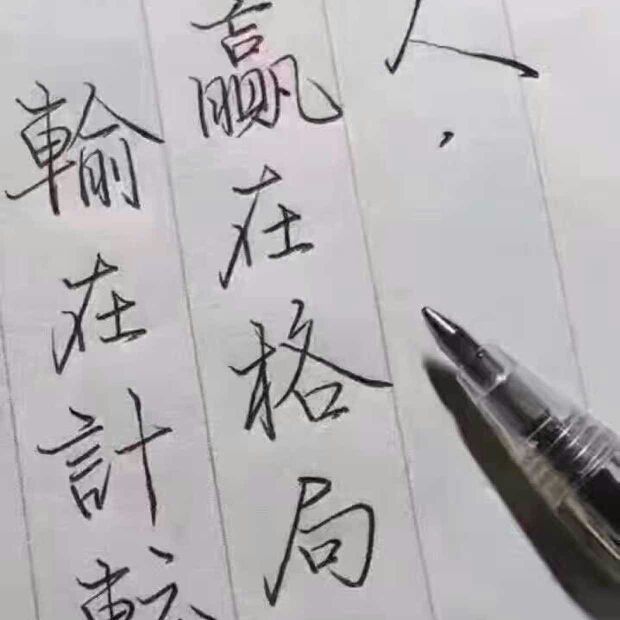 人，
贏在格局
輸在計